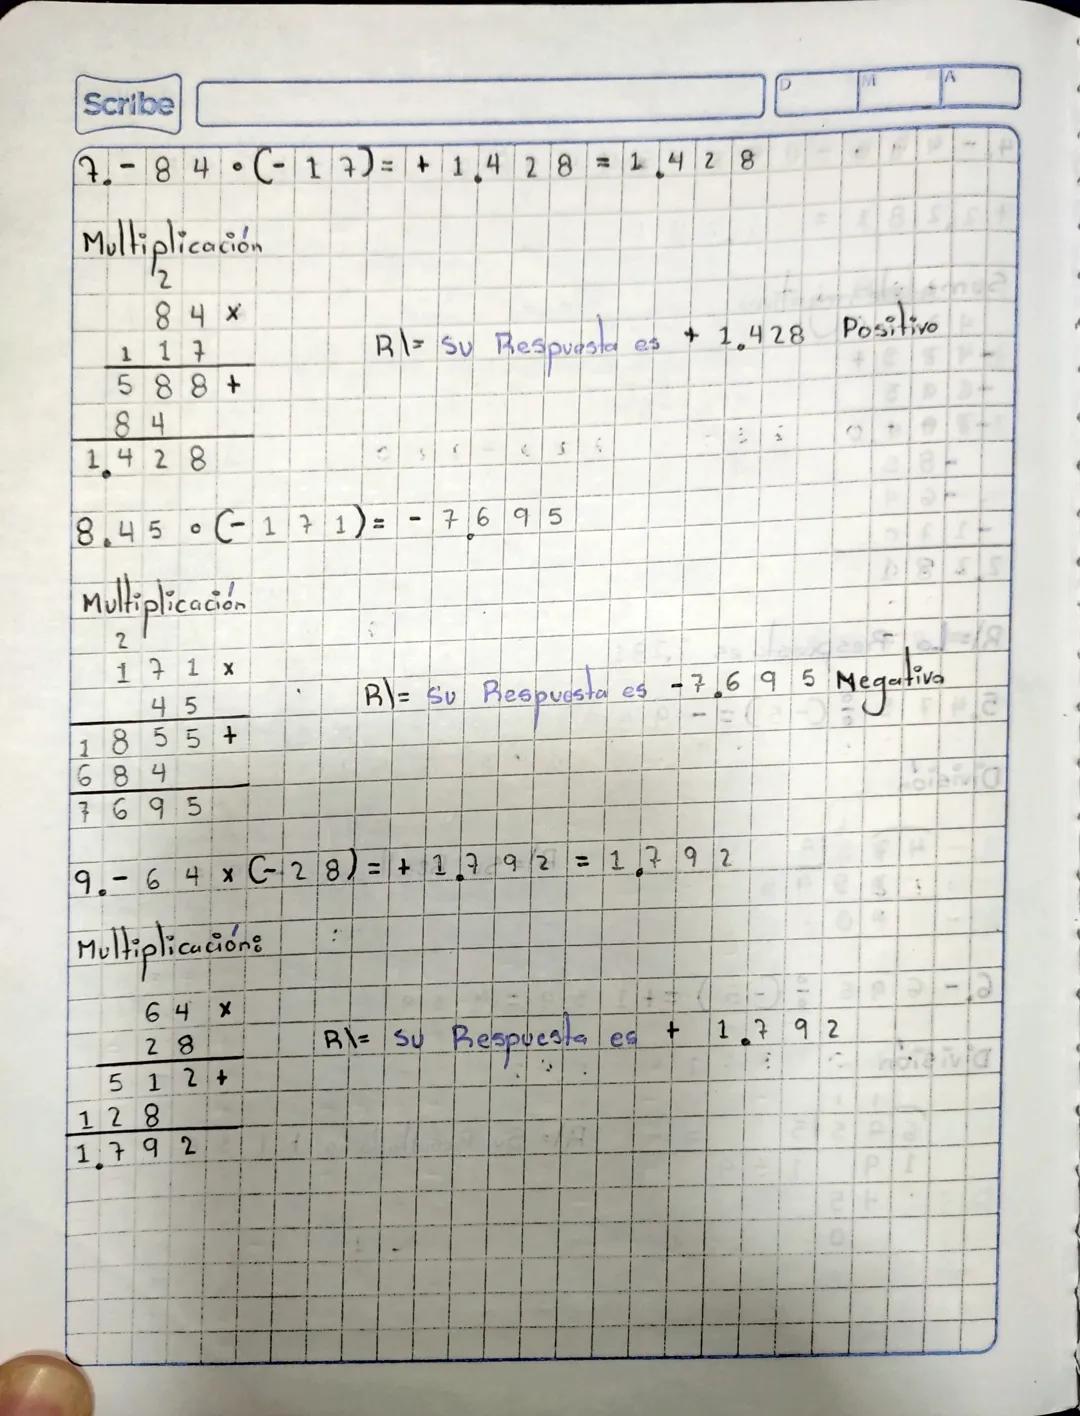 Scribe
D M A
7.- 84 • (-17) = + 1.428 = 1.428
Multiplicación
2
84 x
1 17
588 +
84
1.428
R\= Su Respuesta es + 1.428 Positivo
8. 45 • (-171) = - 7.695
Multiplicación
2
171 x
45
1855 +
684
7695
R\= Su Respuesta es - 7.695 Negativo
9.- 64 x (-28) = + 1.792 = 1.792
Multiplicación:
64 x
28
512 +
128
1.792
R\= Su Respuesta es + 1.792